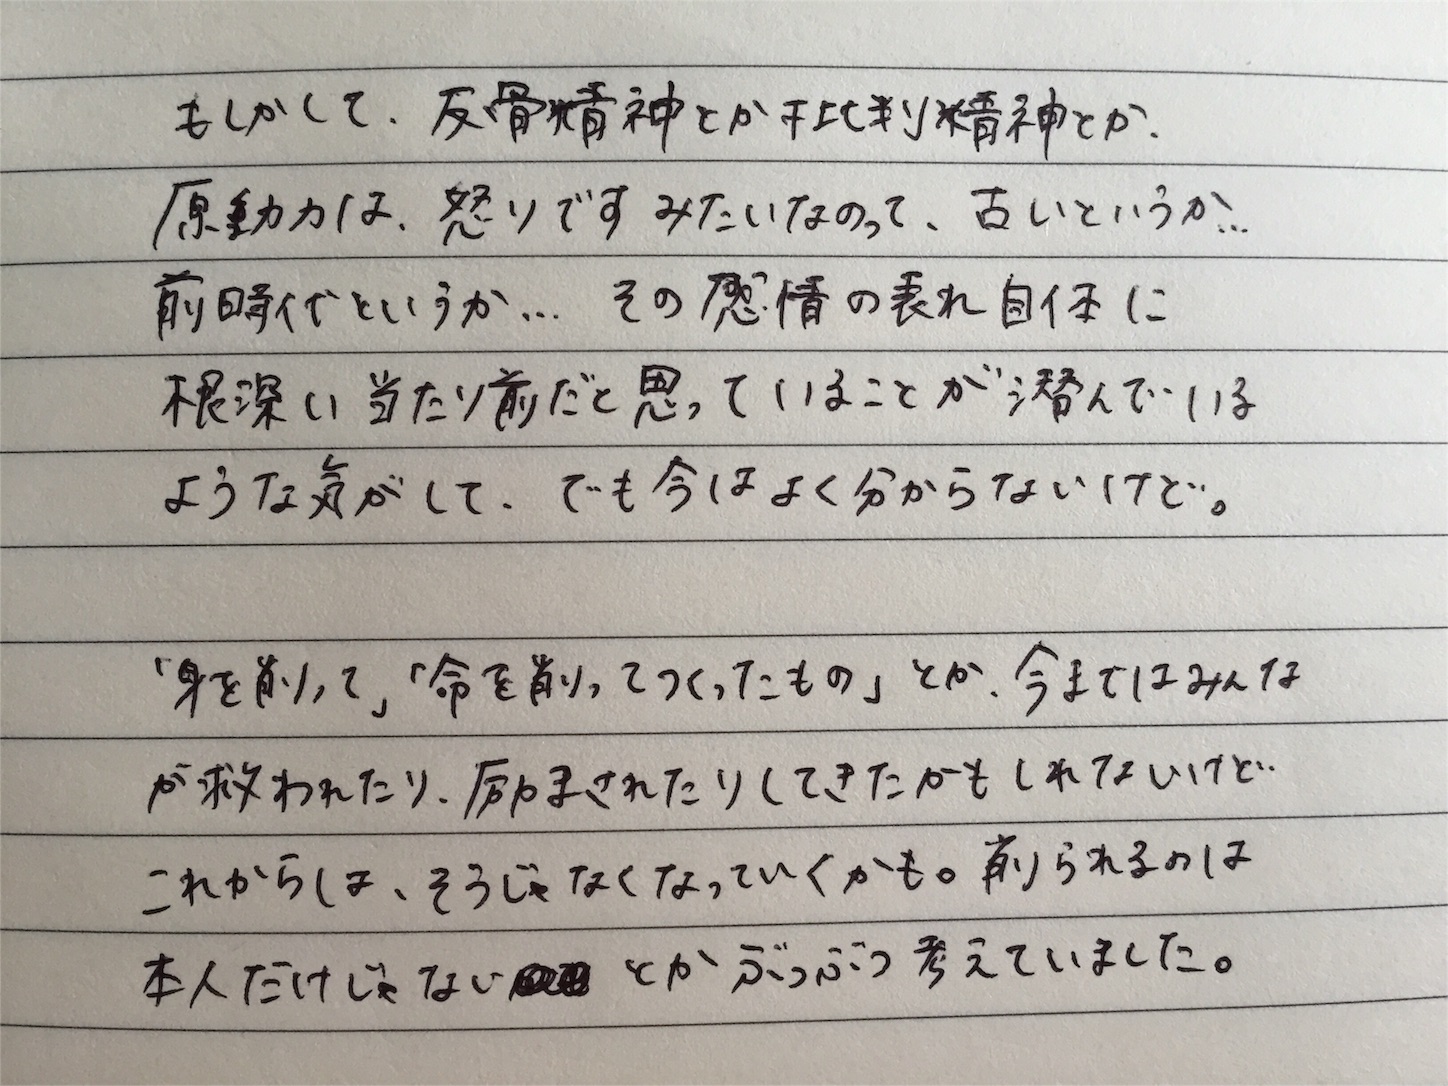 もしかして、反骨精神とか批判精神とか、
原動力は、怒りですみたいなのって、古いというか…
前時代というか… その感情の表れ自体に
根深い当たり前だと思っていることが潜んでいる
ような気がして、でも今はよく分からないけど。
「身を削って」「命を削ってつくったもの」とか、今まではみんな
が救われたり、励まされたりしてきたかもしれないけど
これからは、そうじゃなくなっていくかも。削られるのは
本人だけじゃない とかぶつぶつ考えていました。